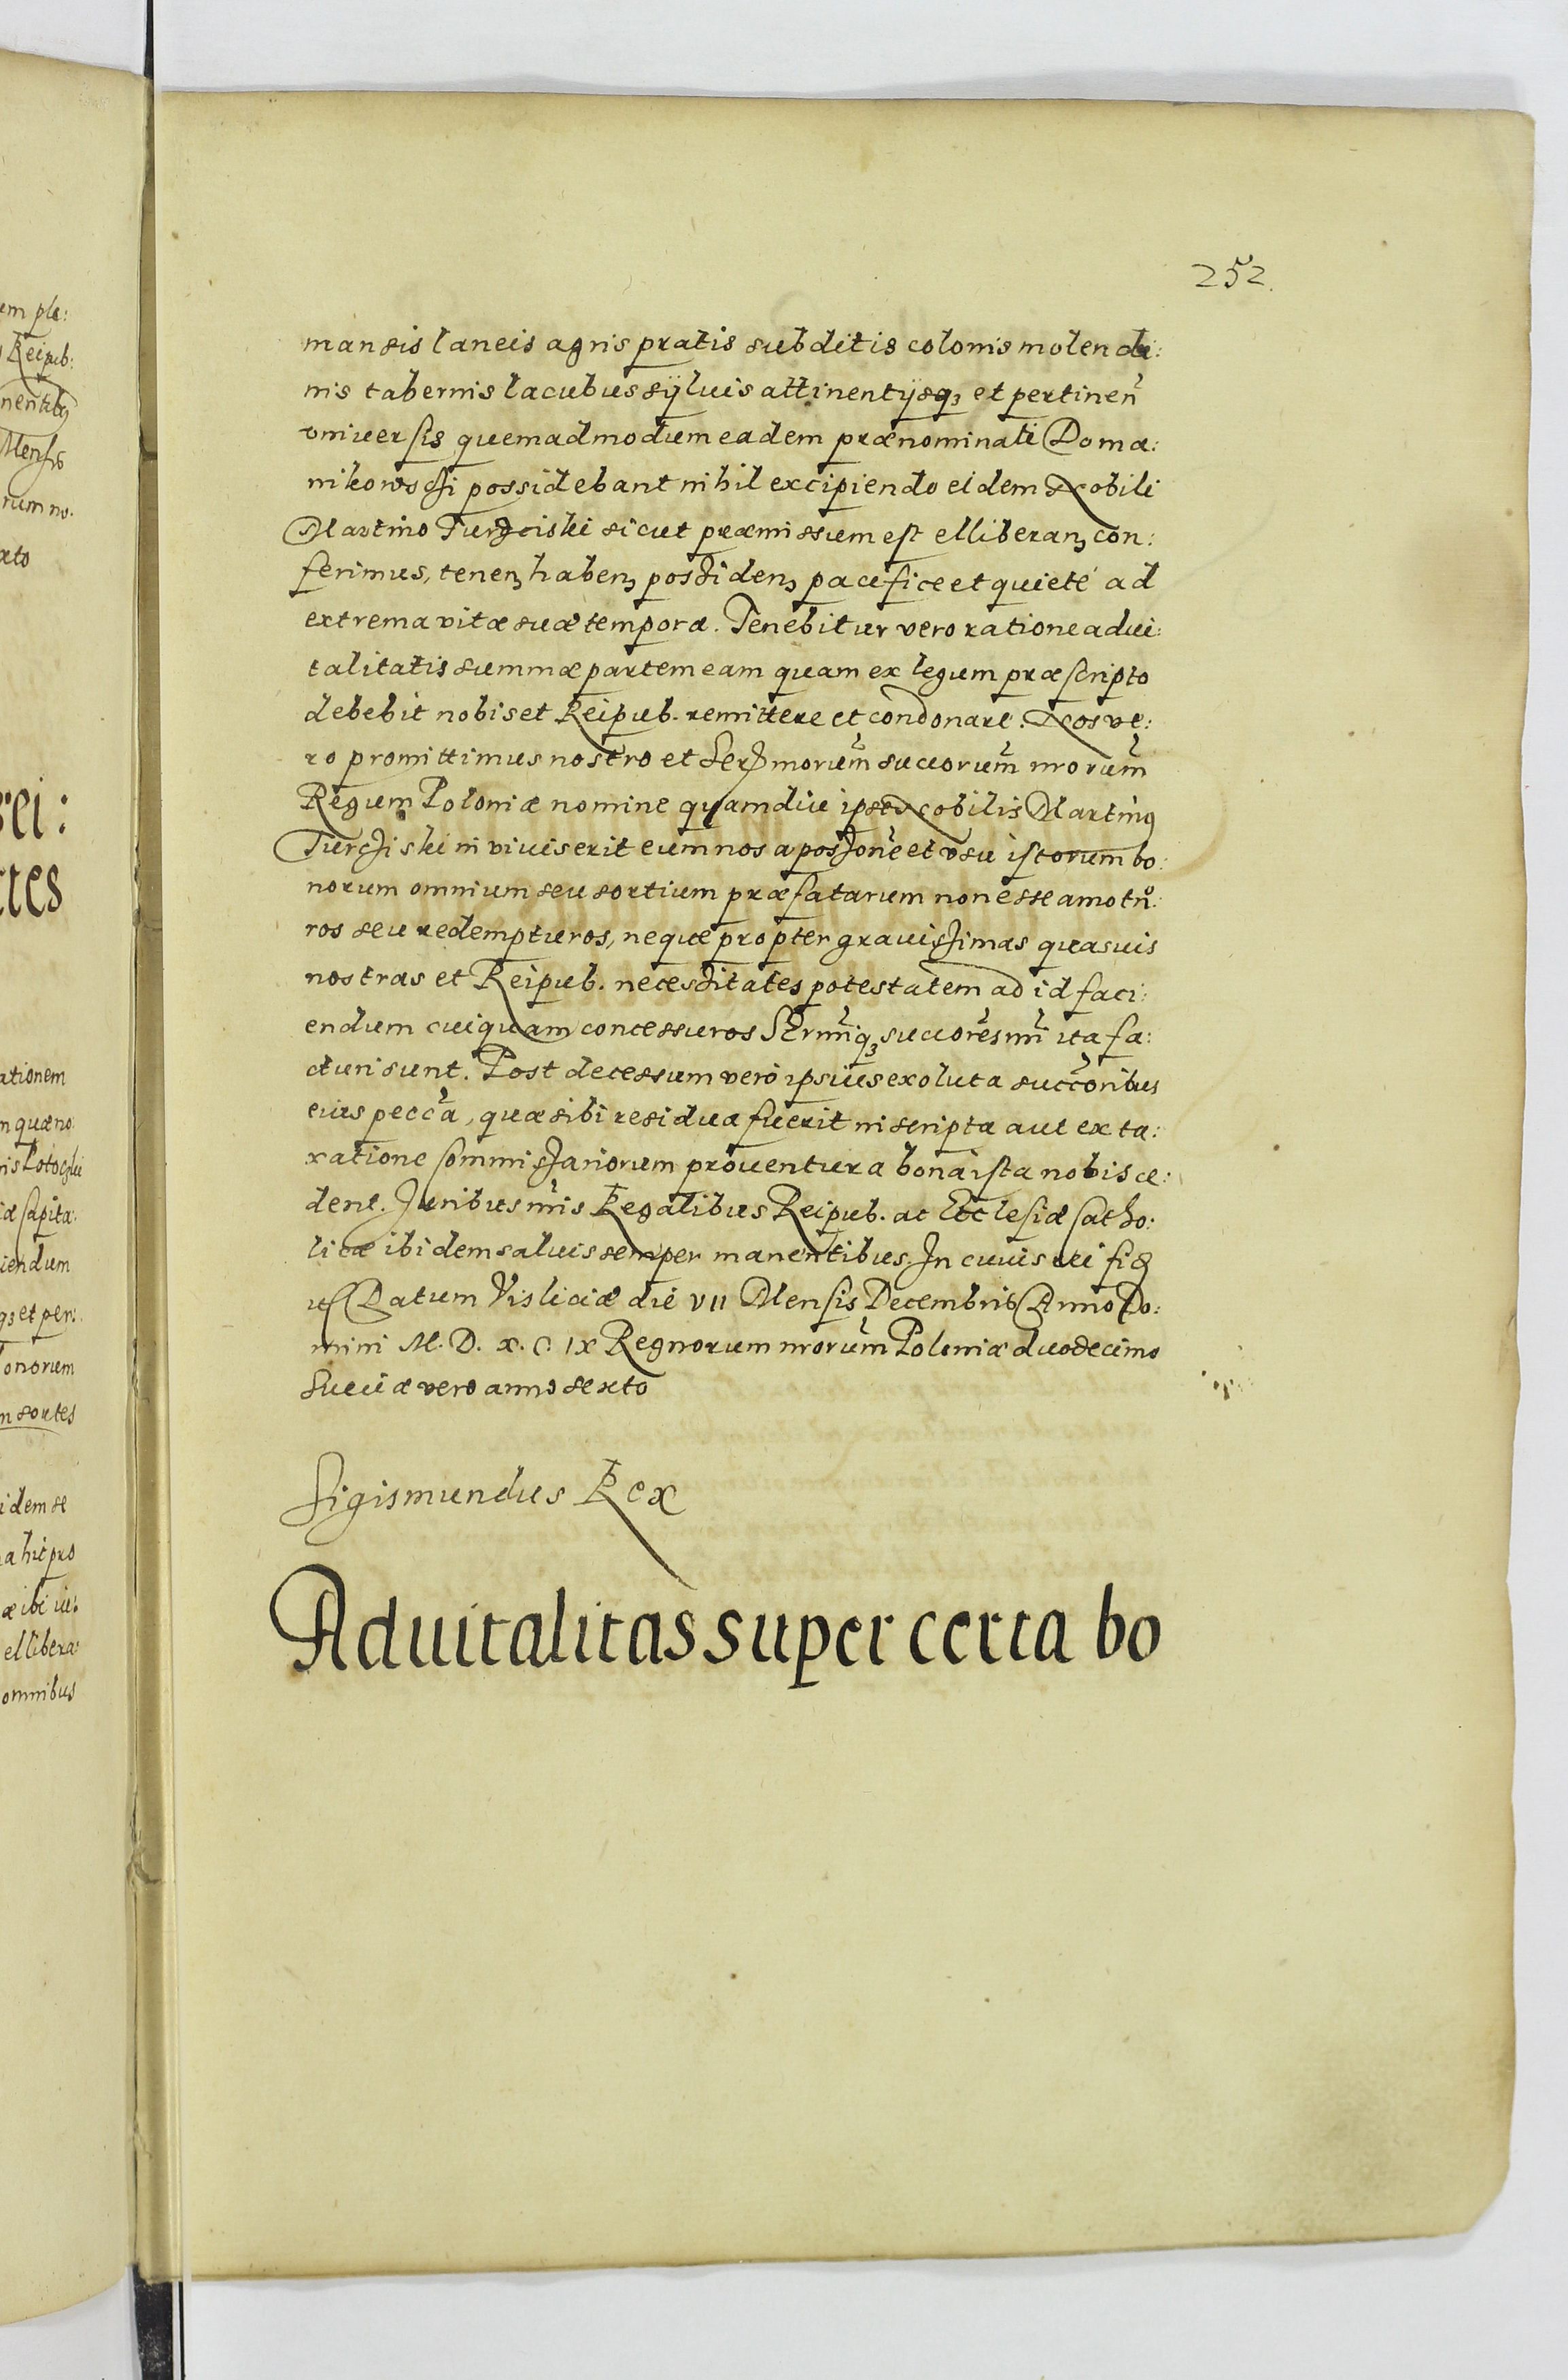 252.
mansis laneis agris pratis subditis colonis molendi:
nis tabernis lacubus sÿluis attinentÿsqꝫ et pertineñ
vniuersis quemadmodum eadem prænominati Doma:
nikowscÿ possidebant nihil excipiendo eidem Nobili
Martino sicut præmissum est elliberanꝫ con:
ferimus, tenenꝫ habenꝫ possidenꝫ pacifice et quiete ad
extrema vitæ suæ tempora. Tenebitur vero ratione adui:
talitatis summæ partem eam quam ex legum præscripto
debebit nobis et Reipub. remittere et condonare. Nos ve:
ro promittimus nostro et Sermorum succorum nrorum
Regum Poloniæ nomine quamdiu ipse Nobilis Martinꝰ
in viuis erit eum nos a possione et vsu istorum bo:
norum omnium seu sortium præfatarum non esse amotu:
ros seu redempturos, neque propter grauissimas quasuis
nostras et Reipub. necessitates potestatem ad id faci:
endum cuiquam concessuros Sermiqꝫ succores nri ita fa:
cturi sunt. Post decessum vero ipsius exoluta succoribus
eius pecca, quæ sibi residua fuerit inscripta aut ex ta:
xatione Commissariorum prouentura bona ista nobis ce:
dent. Juribus nris Regalibus Reipub. ac Ecclesiæ Catho:
licæ ibidem saluis semper manentibus. In cuius rei fid
Datum Visliciæ die VII Mensis Decembris Anno Do:
mini M. D. X. C. IX Regnorum nrorum Poloniæ duodecimo
Sueciæ vero anno sexto
Sigismundus Rex
Aduitalitas super certa bo